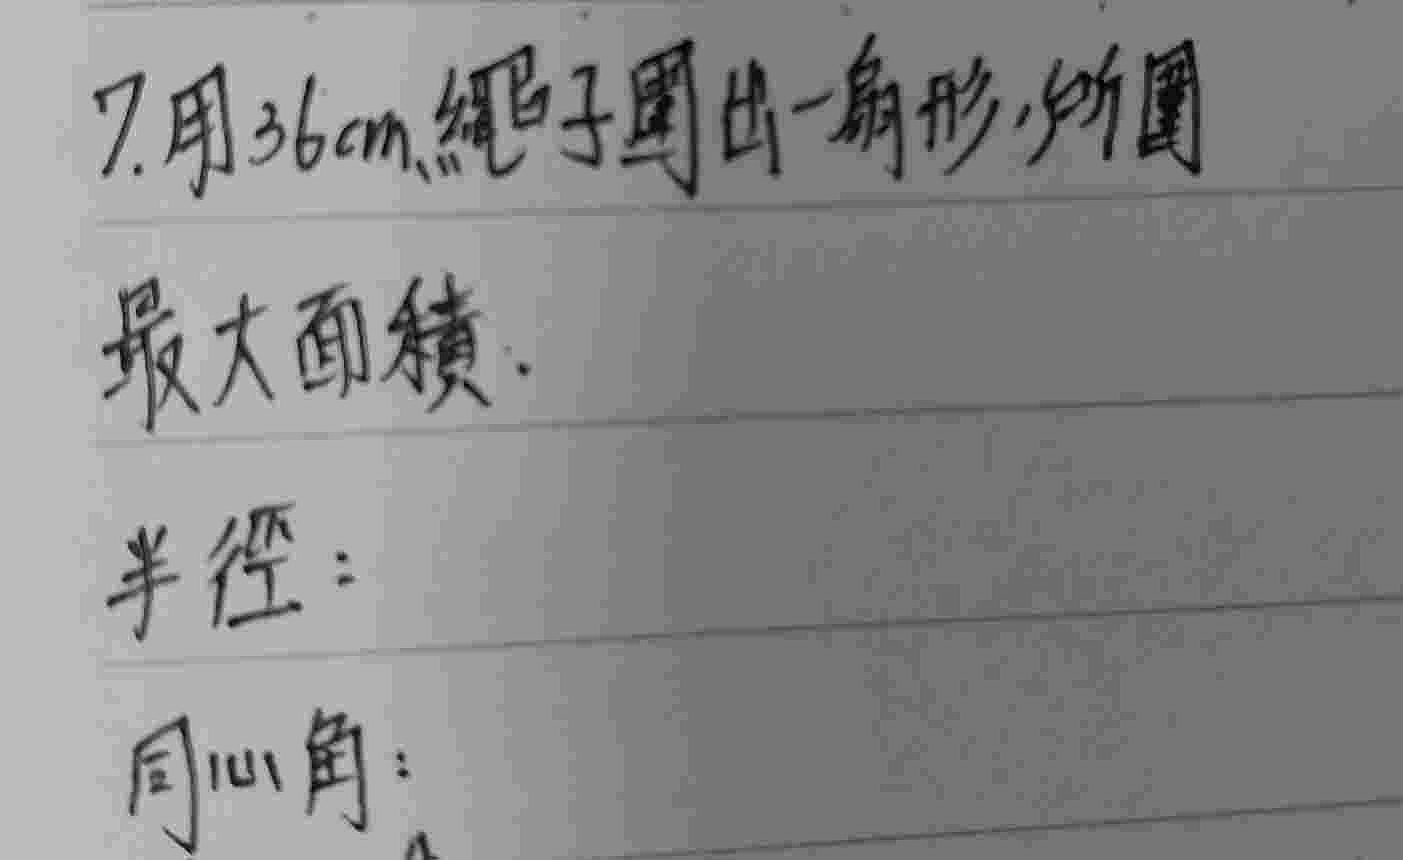 7. 用36cm繩子圍出一扇形，所圍
最大面積.
半徑:
同心角: